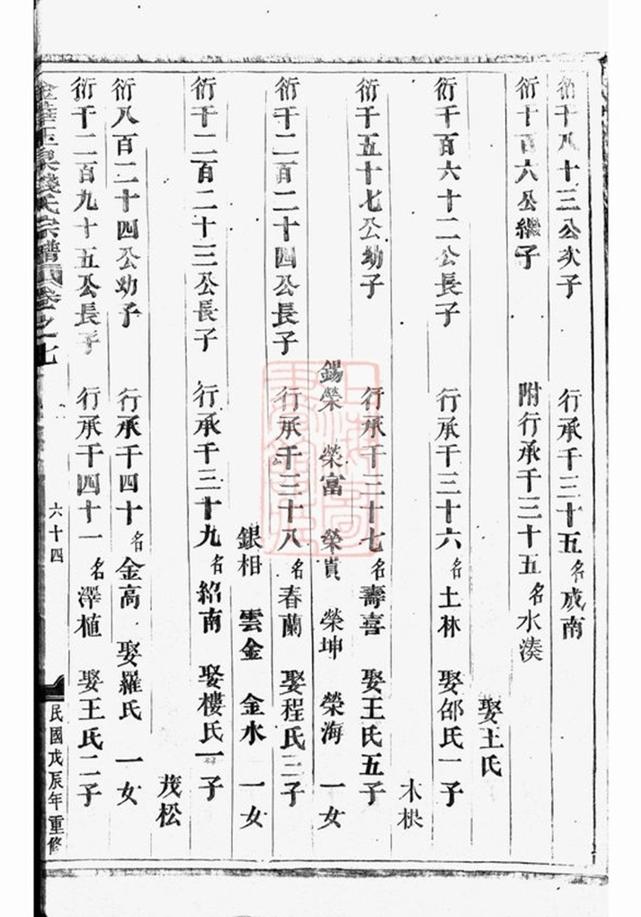 衍千八十三公次子 行承千三十五名成南
衍千百六公繼子 附行承千三十五名水湊
娶王氏
衍千百六十二公長子 行承千三十六名士林 娶邵氏一子
木根
衍千五十七公幼子 行承千三十七名壽喜 娶王氏五子
錫榮 榮富 榮貴 榮坤 榮海 一女
衍千二百二十四公長子 行承千三十八名春蘭 娶程氏三子
銀相 雲金 金水 一女
衍千二百二十三公長子 行承千三十九名紹南 娶樓氏一子
茂松
衍八百二十四公幼子 行承千四十名金高 娶羅氏 一女
衍千二百九十五公長子 行承千四十一名澤植 娶王氏二子
金華玉泉錢氏宗譜 卷之七 六十四 民國戊辰年重修